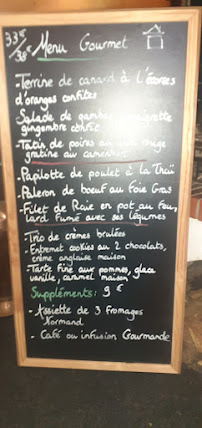 33€
/38€ Menu Gourmet
-Terrine de canard à l'Écorces
d'oranges confites
-Salade de gambas vinaigrette
gingembre confit
-Tatin de poires au vin rouge
gratiné au camembert
-Papilotte de poulet à la Thaï
-Paleron de boeuf au Foie Gras
-Filet de Raie en pot au feu,
lard fumé avec ses légumes
-Trio de crèmes brulées
-Entremet cookies au 2 chocolats,
crème anglaise maison
-Tarte fine aux pommes, glace
vanille, caramel maison
Suppléments: 9 €
-Assiette de 3 fromages
Normand
-Café ou infusion Gourmande